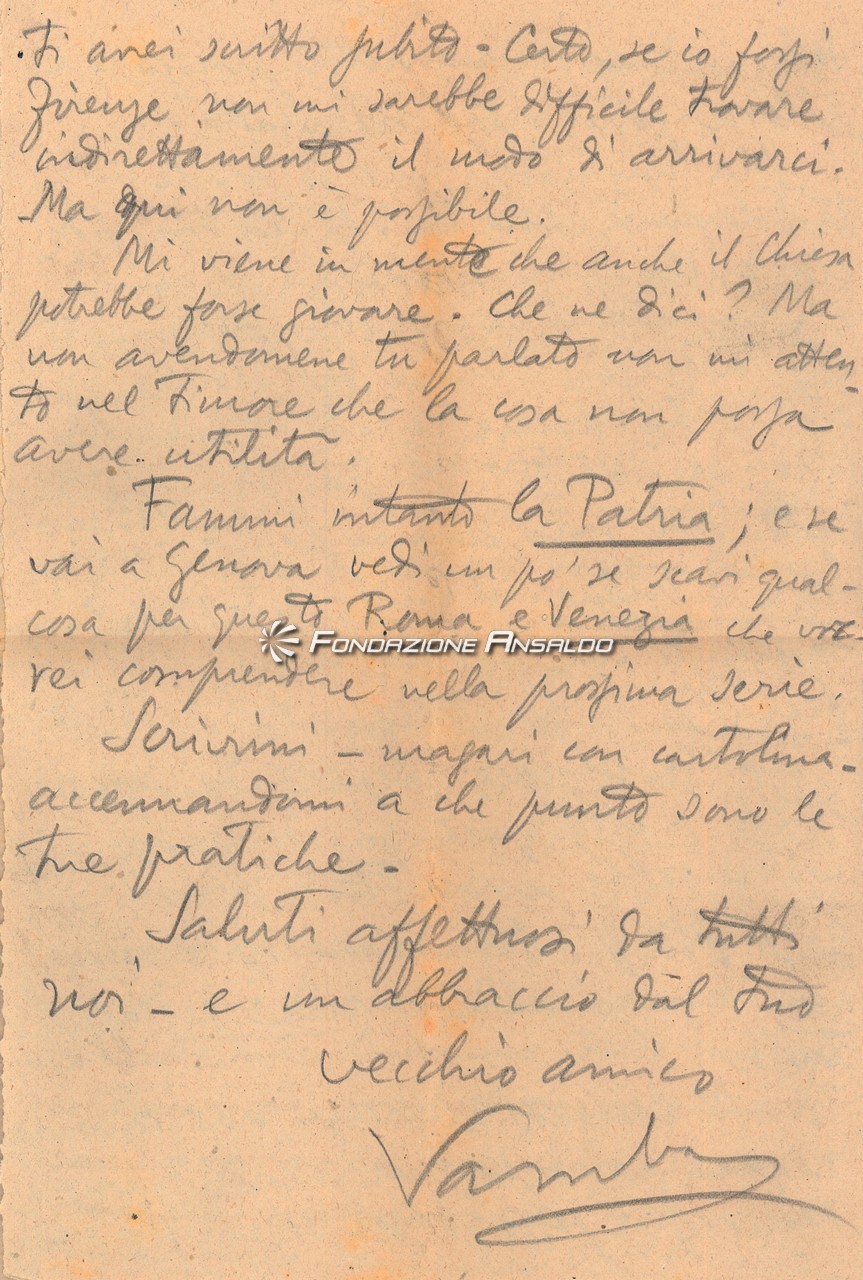 Ti avrei scritto subito - Certo, se io fossi
Firenze non mi sarebbe difficile trovare
indirettamente il modo di arrivarci.
Ma qui non è possibile.
Mi viene in mente che anche il Chiesa
potrebbe forse giovare. Che ne dici? Ma
non avendomene tu parlato non mi atten-
to nel timore che la cosa non possa
avere utilità.
Fammi intanto la Patria; e se
vai a Genova vedi un po' se scavi qual-
cosa per questo Roma e Venezia che vor-
rei comprendere nella prossima serie.
FONDAZIONE ANSALDO
Scrivimi - magari con cartolina -
accennandomi a che punto sono le
tue pratiche -
Saluti affettuosi da tutti
noi - e un abbraccio dal tuo
vecchio amico
Vamba